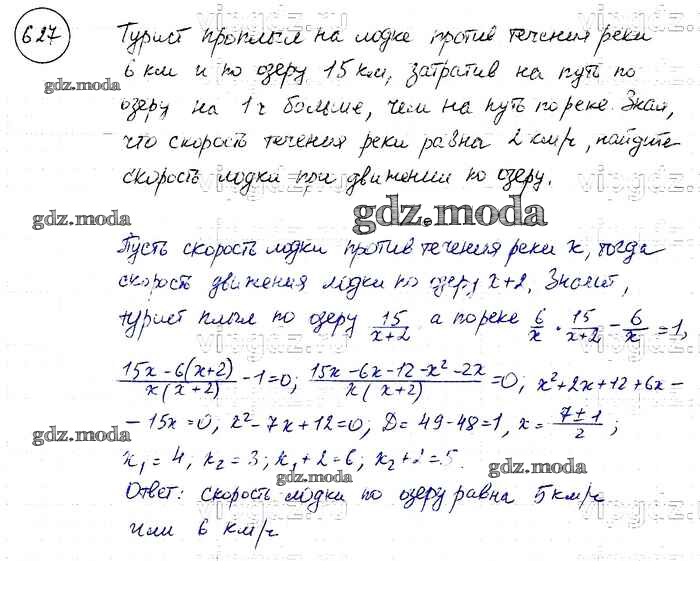 627
Турист проплыл на лодке против течения реки
6 км и по озеру 15 км, затратив на путь по
озеру на 1 ч больше, чем на путь по реке. Зная,
что скорость течения реки равна 2 км/ч, найдите
скорость лодки при движении по озеру.
gdz.moda
gdz.moda
gdz.moda
Пусть скорость лодки против течения реки x, тогда
скорость движения лодки по озеру x+2. Значит,
турист плыл по озеру 15/(x+2) а по реке 6/x. 15/(x+2) - 6/x = 1,
gdz.moda
(15x-6(x+2))/(x(x+2)) - 1=0; (15x-6x-12-x²-2x)/(x(x+2)) =0; x²+2x+12+6x-
-15x=0, x²-7x+12=0; D=49-48=1, x=(7±1)/2;
gdz.moda
x₁=4, x₂=3; x₁+2=6, x₂+2=5.
gdz.moda
Ответ: скорость лодки по озеру равна 5 км/ч
или 6 км/ч
gdz.moda